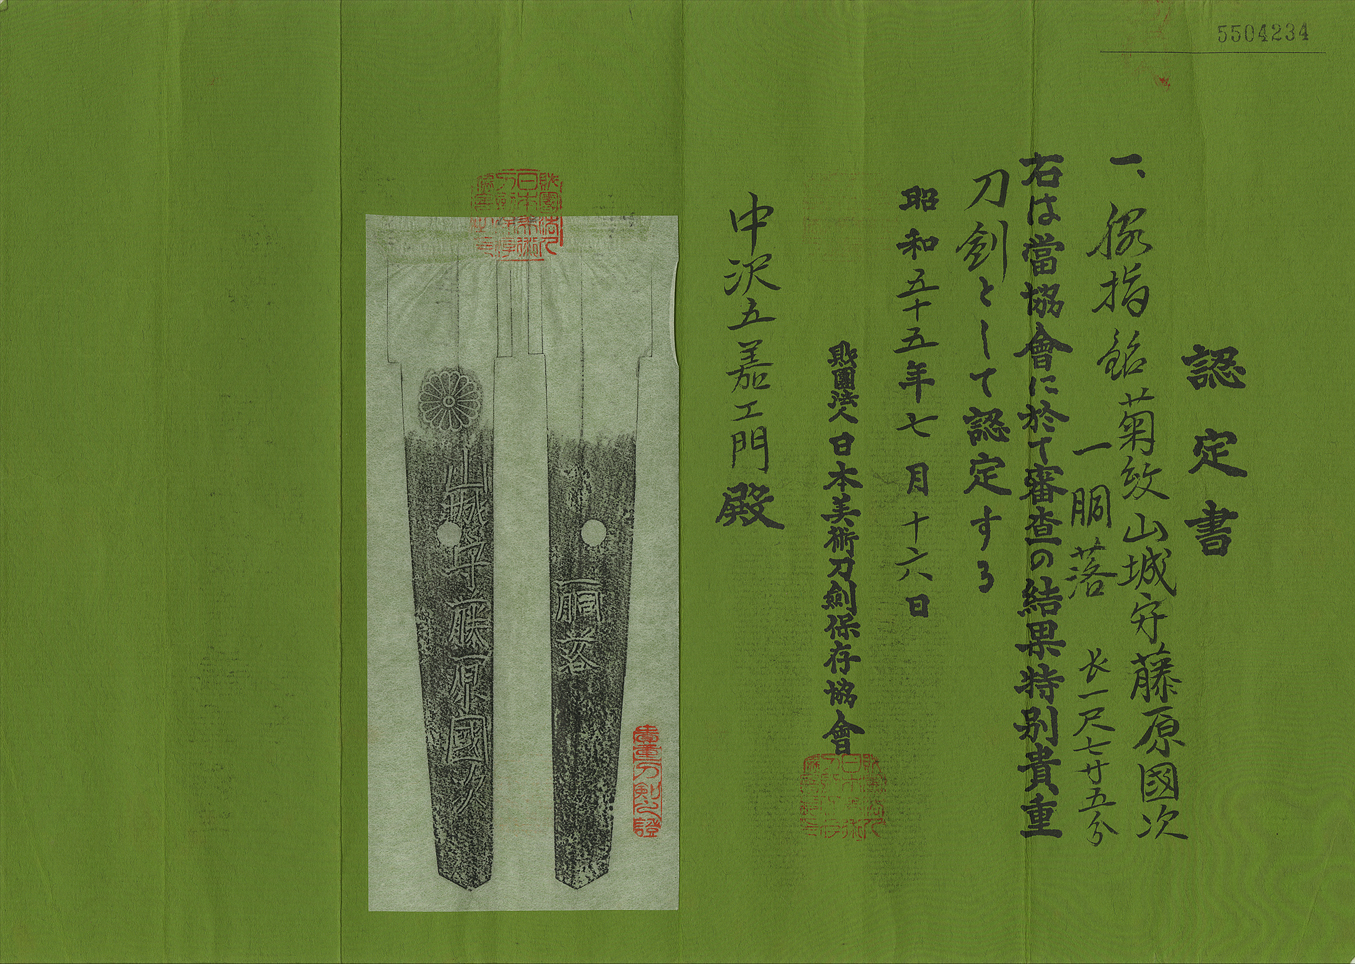 5504234
認定書
一、脇指 銘 菊紋 山城守藤原國次
一胴落 長一尺七寸五分
右は當協會に於て審査の結果特別貴重
刀劍として認定する
昭和五十五年七月十六日
財團法人 日本美術刀劍保存協會
中沢五嘉エ門殿
山城守藤原國次
一胴落
貴重刀剣之證